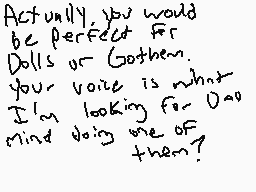 Actually, you would
be perfect for
Dolls or Gothem.
Your voice is what
I'm looking for 0^0
mind doing one of
them?